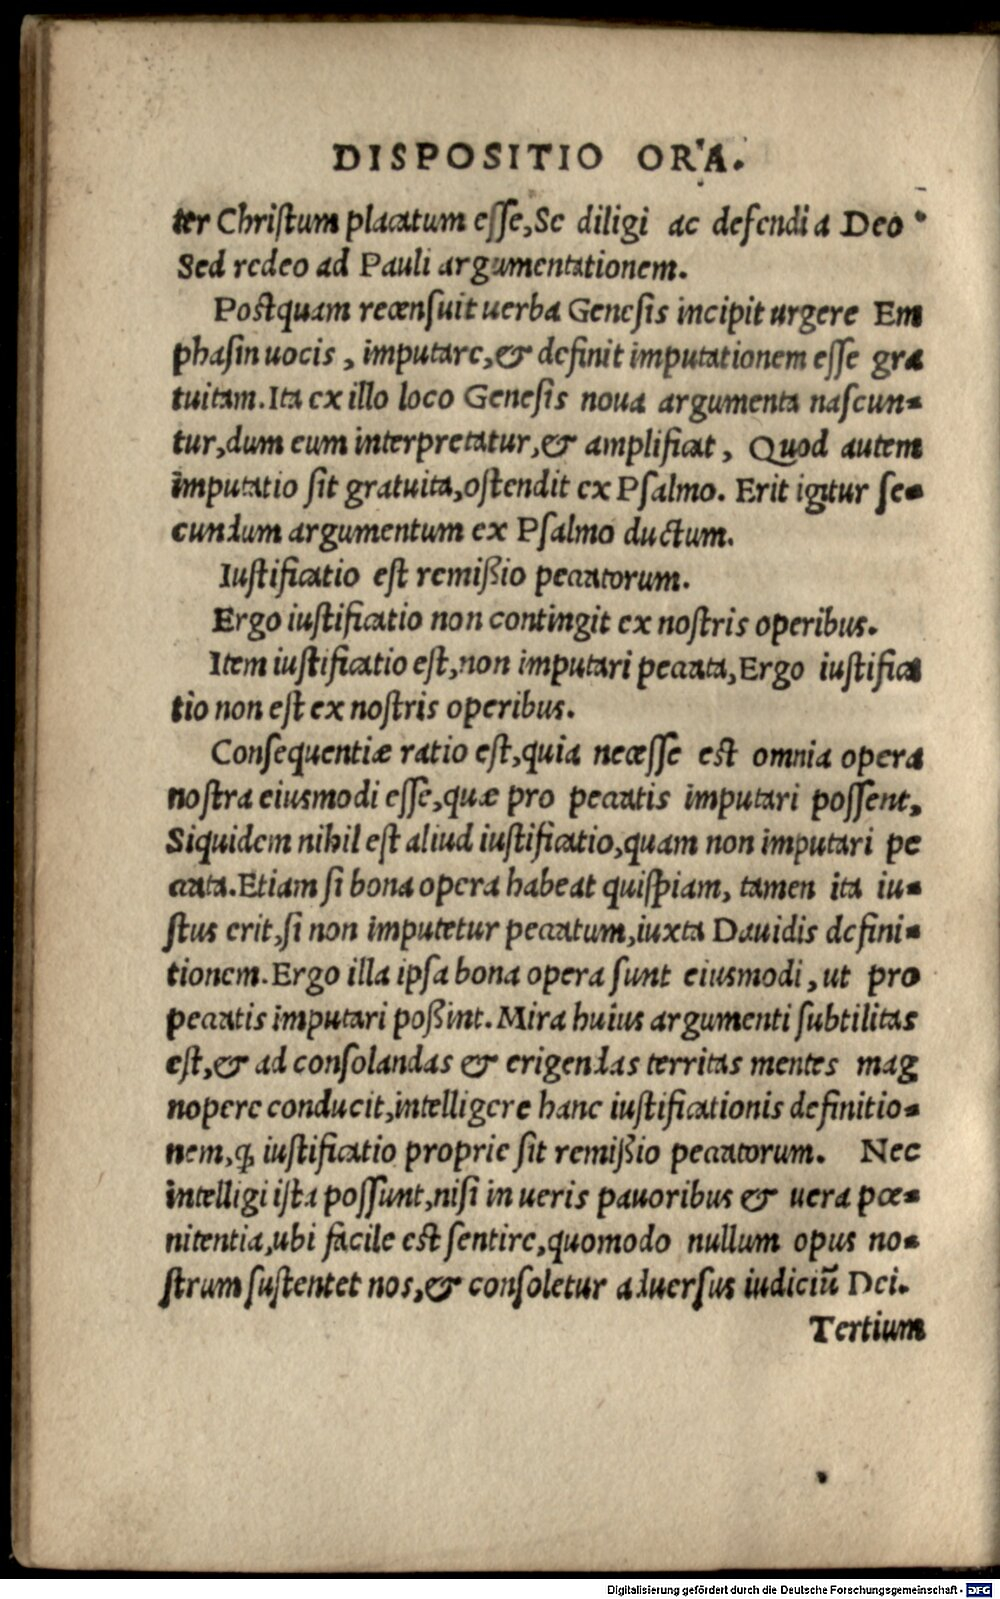 DISPOSITIO ORA.
ter Chriſtum placatum eſſe, Se diligi ac defendi a Deo
Sed redeo ad Pauli argumentationem.
Postquam recenſuit uerba Geneſis incipit urgere Em
phaſin uocis, imputare, & definit imputationem eſſe gra
tuitam. Ita ex illo loco Geneſis noua argumenta naſcun-
tur, dum eum interpretatur, & amplificat, Quod autem
imputatio ſit gratuita, oſtendit ex Pſalmo. Erit igitur ſe-
cundum argumentum ex Pſalmo ductum.
Iuſtificatio eſt remißio peccatorum.
Ergo iuſtificatio non contingit ex noſtris operibus.
Item iuſtificatio eſt, non imputari peccata, Ergo iuſtifica
tio non eſt ex noſtris operibus.
Conſequentiæ ratio eſt, quia neceſſe est omnia opera
noſtra eiusmodi eſſe, quæ pro peccatis imputari poſſent,
Siquidem nihil eſt aliud iuſtificatio, quam non imputari pe
ccata. Etiam ſi bona opera habeat quiſpiam, tamen ita iu-
ſtus erit, ſi non imputetur peccatum, iuxta Dauidis defini-
tionem. Ergo illa ipſa bona opera ſunt eiusmodi, ut pro
peccatis imputari poßint. Mira huius argumenti ſubtilitas
eſt, & ad conſolandas & erigendas territas mentes mag
nopere conducit, intelligere hanc iuſtificationis definitio-
nem, ꝙ iuſtificatio proprie ſit remißio peccatorum. Nec
intelligi iſta poſſunt, niſi in ueris pauoribus & uera pœ-
nitentia, ubi facile est ſentire, quomodo nullum opus no-
ſtrum ſuſtentet nos, & conſoletur aduerſus iudiciū Dei.
Tertium
Digitalisierung gefördert durch die Deutsche Forschungsgemeinschaft - DFG